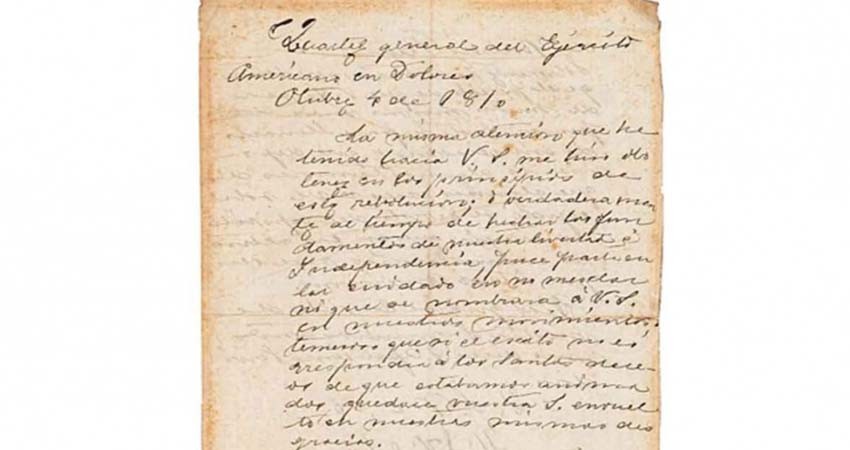 Quartel general del Ejército
Américano en Dolores
Otubre 4 de 1810
La misma atención que he
tenido hacia V. S. me hiso ob
tener en los prinsipios de
esta rebolución; ó verdadera men
te al tiempo de hechar los fun
damentos de nuestra livertad é
Independencia, puce particu
lar cuidado en no mesclar
ni que se nombrara á V. S.
en nuestros movimientos,
temeroso que si el exito no co
rrespondia á los Santos dece
os de que estabamos anima
dos quedace vuestra S. envuel
to en nuestras mismas des
gracias.